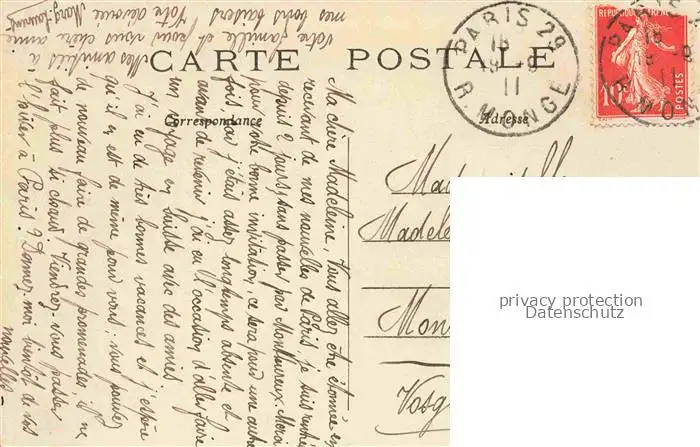 CARTE POSTALE
Correspondance
Adresse
PARIS 29
18
19-9
11
R. MONGE
REPUBLIQUE FRANÇAISE
10
POSTES
Ma chère Madeleine, Vous allez être étonnée en
recevant de mes nouvelles de Paris, je suis rentrée
depuis 2 jours, sans passer par Monthureux. Merci
pour votre bonne invitation, ce sera pour une autre
fois, car j'étais assez longtemps absente et
avant de revenir j'ai eu l'occasion d'aller faire
un voyage en Suisse avec des amies.
J'ai eu de très bonnes vacances et j'espère
qu'il en est de même pour vous; vous pouvez
de nouveau faire de grandes promenades, il ne
fait plus si chaud. Viendrez-vous passer
l'hiver à Paris? Donnez-moi bientôt de vos
nouvelles-
Mes amitiés à
votre famille et pour vous chère amie
mes bons baisers Votre dévouée
Madele
Mon
Vosg
privacy protection
Datenschutz